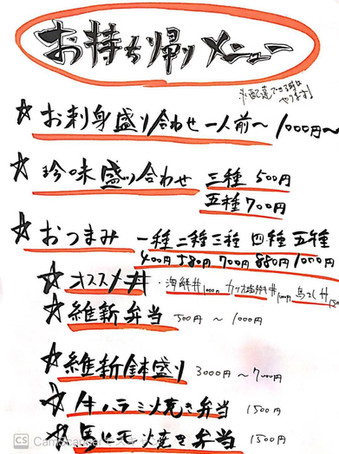 お持ち帰りメニュー
※配達できる時は
やります!
☆お刺身盛り合わせ一人前〜 1000円〜
☆珍味盛り合わせ 三種 500円
五種 700円
☆おつまみ 一種 二種 三種 四種 五種
400円 580円 700円 880円 1000円
☆オススメ丼 ・海鮮丼
☆維新弁当 500円〜1000円
☆維新鉢盛り 3000円〜7000円
☆牛ハラミ焼き弁当 1500円
☆馬ヒモ焼き弁当 1500円
CS CamScanner